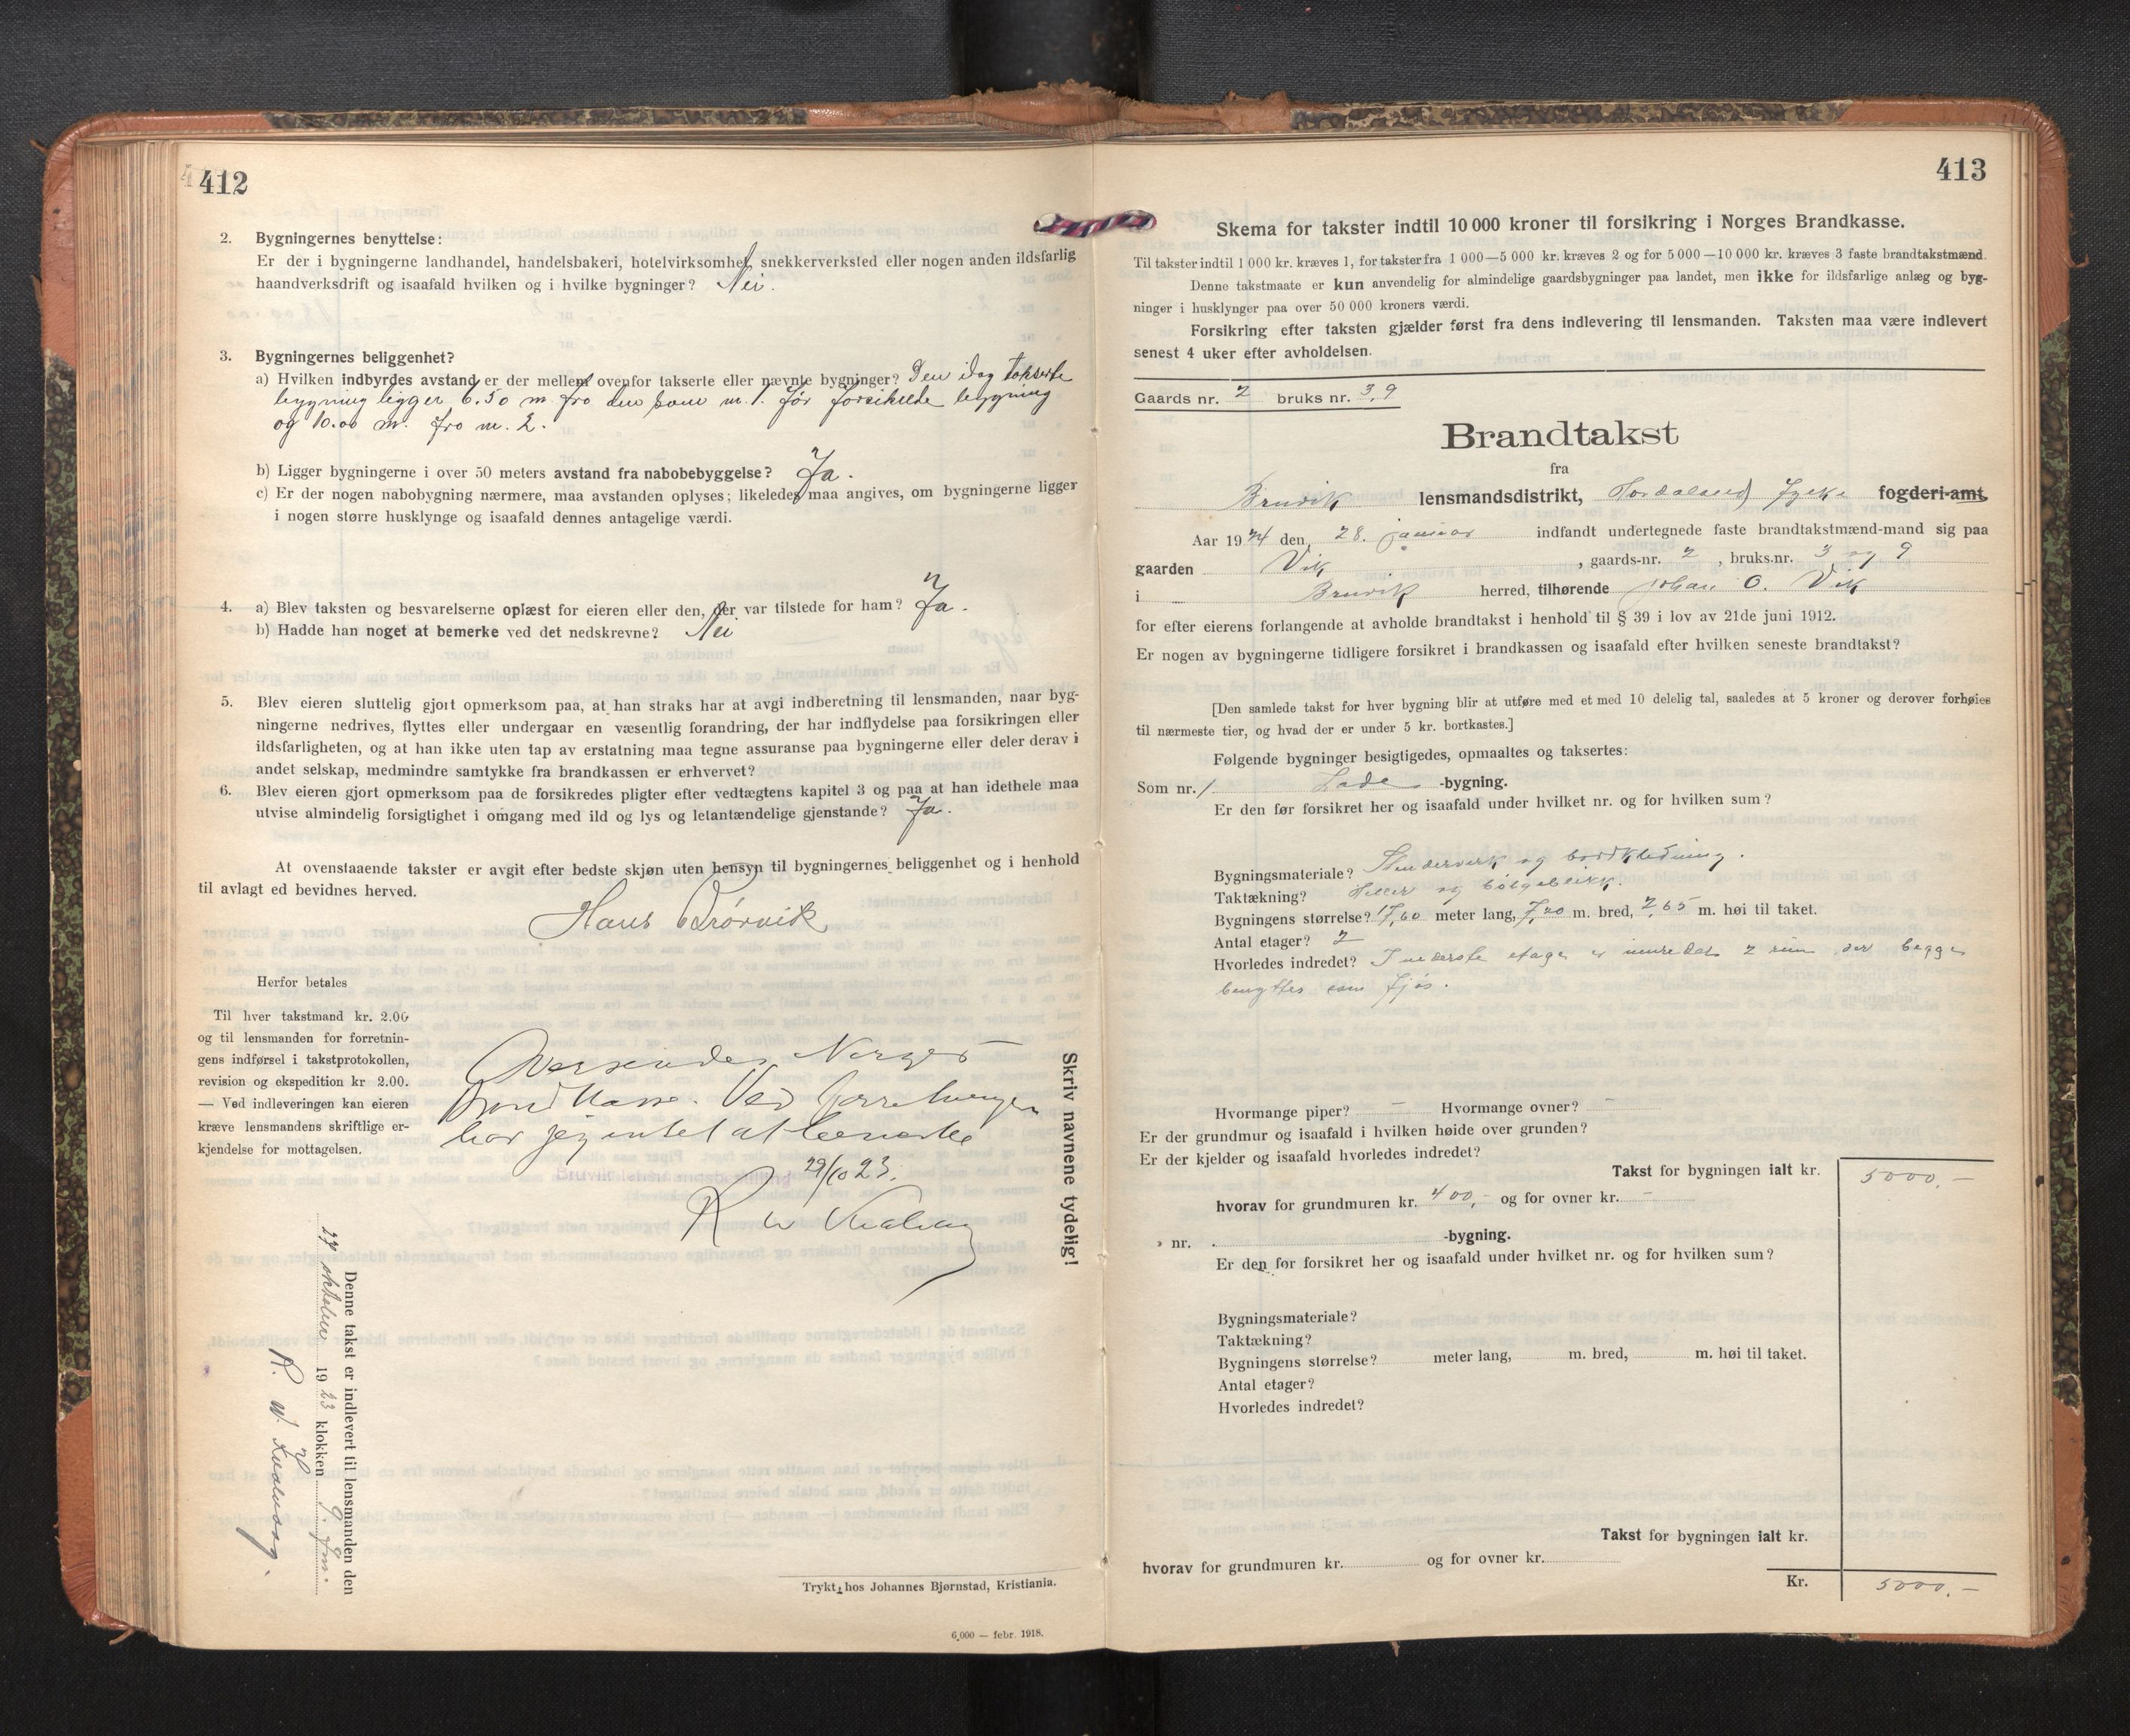 412
2. Bygningernes benyttelse:
Er der i bygningerne landhandel, handelsbakeri, hotelvirksomhet, snekkerverksted eller nogen anden ildsfarlig
haandverksdrift og isaafald hvilken og i hvilke bygninger? Nei.
3. Bygningernes beliggenhet?
a) Hvilken indbyrdes avstand er der mellem ovenfor takserte eller nævnte bygninger? Den idag takserte
bygning ligger 6.50 m. fra den som nr. 1. før forsikrede bygning
og 10.00 m. fra nr. 2.
b) Ligger bygningerne i over 50 meters avstand fra nabobebyggelse? Ja.
c) Er der nogen nabobygning nærmere, maa avstanden oplyses; likeledes maa angives, om bygningerne ligger
i nogen større husklynge og isaafald dennes antagelige værdi.
4. a) Blev taksten og besvarelserne oplæst for eieren eller den, der var tilstede for ham? Ja.
b) Hadde han noget at bemerke ved det nedskrevne? Nei
5. Blev eieren sluttelig gjort opmerksom paa, at han straks har at avgi indberetning til lensmanden, naar byg-
ningerne nedrives, flyttes eller undergaar en væsentlig forandring, der har indflydelse paa forsikringen eller
ildsfarligheten, og at han ikke uten tap av erstatning maa tegne assuranse paa bygningerne eller deler derav i
andet selskap, medmindre samtykke fra brandkassen er erhvervet?
6. Blev eieren gjort opmerksom paa de forsikredes pligter efter vedtægtens kapitel 3 og paa at han idethele maa
utvise almindelig forsigtighet i omgang med ild og lys og letantændelige gjenstande? Ja.
At ovenstaaende takster er avgit efter bedste skjøn uten hensyn til bygningernes beliggenhet og i henhold
til avlagt ed bevidnes herved.
Hans Rørvik
Herfor betales
Til hver takstmand kr. 2.00
og til lensmanden for forretnin-
gens indførsel i takstprotokollen,
revision og ekspedition kr 2.00.
— Ved indleveringen kan eieren
kræve lensmandens skriftlige er-
kjendelse for mottagelsen.
Oversendes Norges
Brandkasse. Ved forretningen
har jeg intet at bemerke
Bruvik lensmandsbestilling 29/10 23.
R W
Skriv navnene tydelig!
Denne takst er indlevert til lensmanden den
27 oktober 1923 klokken 9 fm.
R. W.
Trykt hos Johannes Bjørnstad, Kristiania.
6,000 — febr. 1918.
413
Skema for takster indtil 10 000 kroner til forsikring i Norges Brandkasse.
Til takster indtil 1 000 kr. kræves 1, for takster fra 1 000—5 000 kr. kræves 2 og for 5 000—10 000 kr. kræves 3 faste brandtakstmænd.
Denne takstmaate er kun anvendelig for almindelige gaardsbygninger paa landet, men ikke for ildsfarlige anlæg og byg-
ninger i husklynger paa over 50 000 kroners værdi.
Forsikring efter taksten gjælder først fra dens indlevering til lensmanden. Taksten maa være indlevert
senest 4 uker efter avholdelsen.
Gaards nr. 2 bruks nr. 3,9
Brandtakst
fra
Bruvik lensmandsdistrikt, Hordaland fylke fogderi-amt
Aar 1924 den 28. januar indfandt undertegnede faste brandtakstmænd-mand sig paa
gaarden Vik, gaards-nr. 2, bruks.nr. 3 og 9
i Bruvik herred, tilhørende Johan O. Vik
for efter eierens forlangende at avholde brandtakst i henhold til § 39 i lov av 21de juni 1912.
Er nogen av bygningerne tidligere forsikret i brandkassen og isaafald efter hvilken seneste brandtakst?
[Den samlede takst for hver bygning blir at utføre med et med 10 delelig tal, saaledes at 5 kroner og derover forhøies
til nærmeste tier, og hvad der er under 5 kr. bortkastes.]
Følgende bygninger besigtigedes, opmaaltes og taksertes:
Som nr. 1 Lade -bygning.
Er den før forsikret her og isaafald under hvilket nr. og for hvilken sum?
Bygningsmateriale? Stenderverk og bordklædning.
Taktækning? Heller og bølgeblikk.
Bygningens størrelse? 17,60 meter lang, 7,20 m. bred, 2,65 m. høi til taket.
Antal etager? 2
Hvorledes indredet? I nederste etage er innredet 2 rum der begge
benyttes som fjøs.
Hvormange piper? – Hvormange ovner? –
Er der grundmur og isaafald i hvilken høide over grunden?
Er der kjelder og isaafald hvorledes indredet?
Takst for bygningen ialt kr. 5000.–
hvorav for grundmuren kr. 400,– og for ovner kr. –
» nr. -bygning.
Er den før forsikret her og isaafald under hvilket nr. og for hvilken sum?
Bygningsmateriale?
Taktækning?
Bygningens størrelse? meter lang, m. bred, m. høi til taket.
Antal etager?
Hvorledes indredet?
Takst for bygningen ialt kr.
hvorav for grundmuren kr. og for ovner kr.
Kr. 5000.–